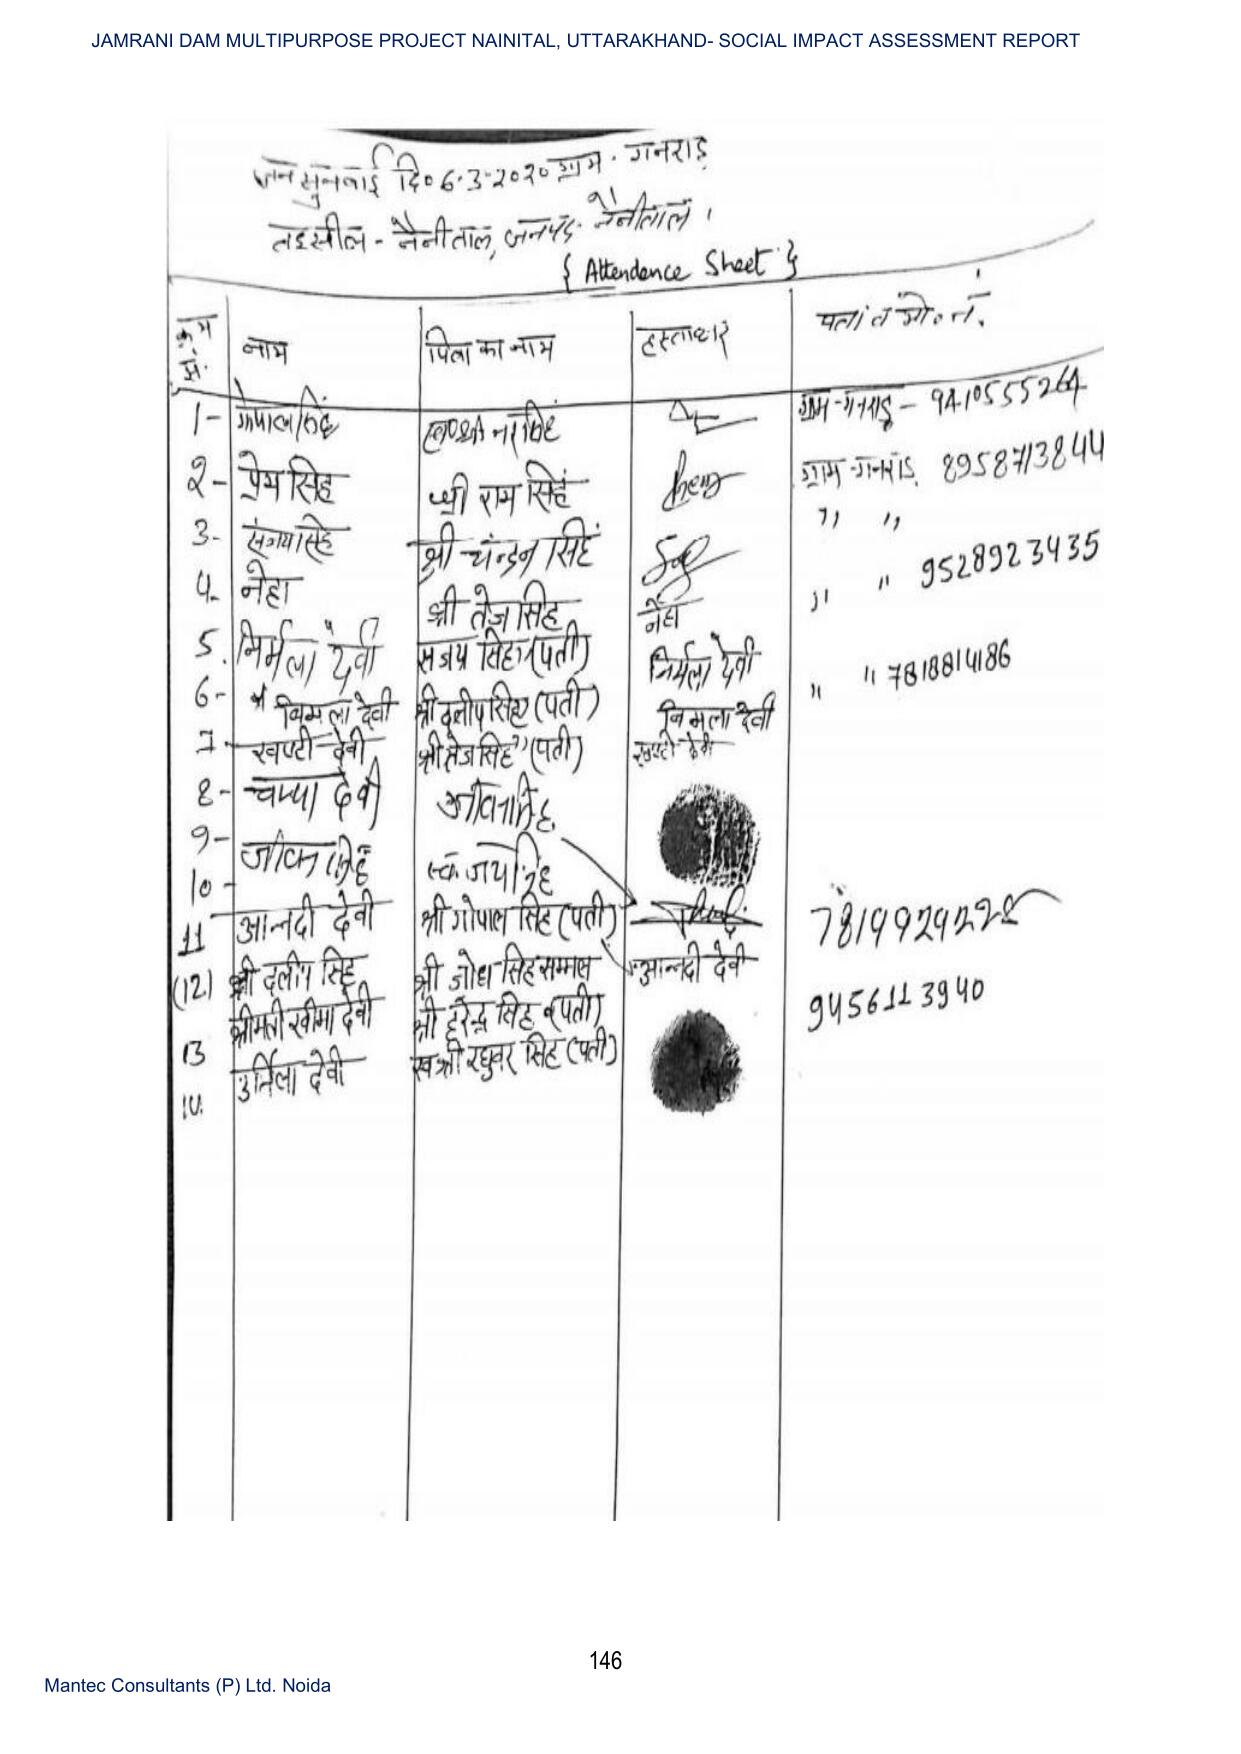 JAMRANI DAM MULTIPURPOSE PROJECT NAINITAL, UTTARAKHAND- SOCIAL IMPACT ASSESSMENT REPORT
जन सुनवाई दि० 6-3-2020 ग्राम - गनराड़
तहसील - नैनीताल, जनपद - नैनीताल ।
{ Attendence Sheet }
क्रम सं. नाम पिता का नाम हस्ताक्षर पता व मो. नं.
1- गोपाल सिंह स्व० श्री नर सिंह ग्राम-गनराड़ - 9410555264
2- प्रेम सिंह श्री राम सिंह ग्राम-गनराड़ 8958713844
3- संजय सिंह श्री चन्दन सिंह " "
4- नेहा श्री तेज सिंह नेहा " " 9528923435
5. निर्मला देवी संजय सिंह (पती) निर्मला देवी " " 7818814186
6- विमला देवी श्री दलीप सिंह (पती) विमला देवी
7- खष्टी देवी श्री तेज सिंह (पती) खष्टी देवी
8- चम्पा देवी जीवन सिंह
9- जीवन सिंह स्व. जय सिंह
10-
11 आनन्दी देवी श्री गोपाल सिंह (पती) 7819929228
(12) श्री दलीप सिंह श्री जोध सिंह सम्मल आनन्दी देवी
श्रीमती खीमा देवी श्री हरेन्द्र सिंह (पती) 9456113940
13 उर्मिला देवी स्व श्री रघुवर सिंह (पती)
14.
146
Mantec Consultants (P) Ltd. Noida